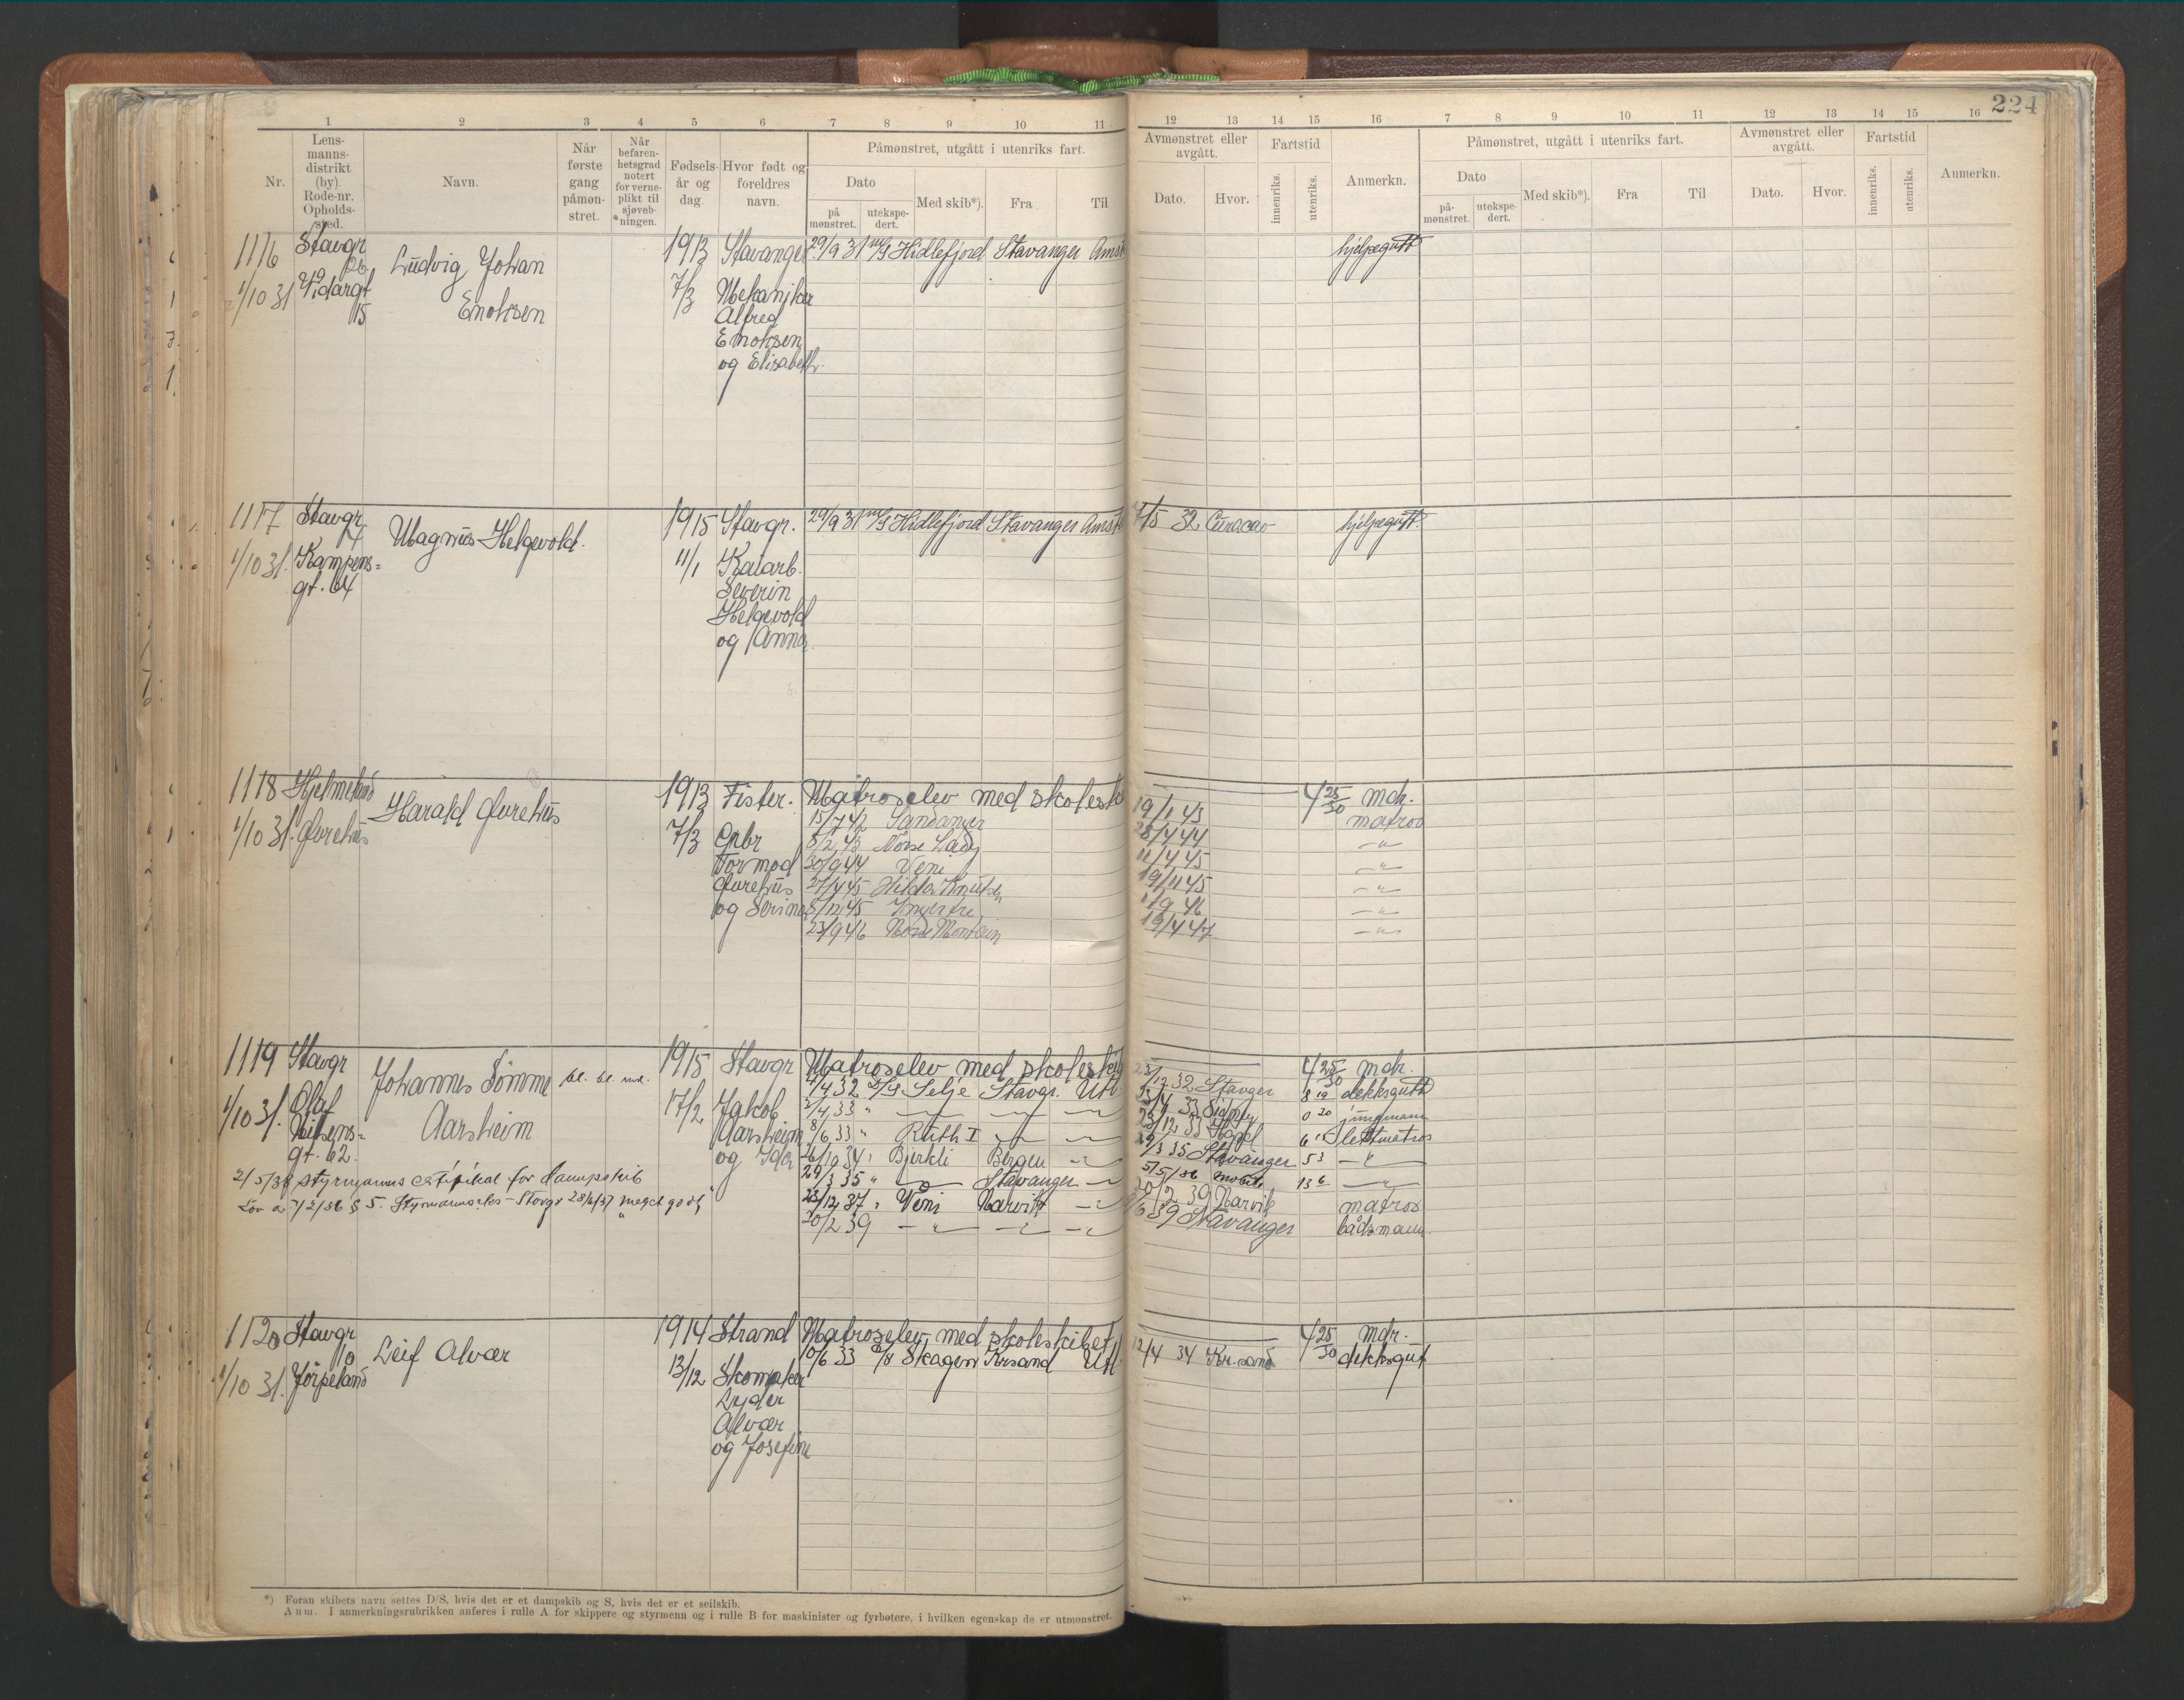 224
1 2 3 4 5 6 7 8 9 10 11 12 13 14 15 16 7 8 9 10 11 12 13 14 15 16
Nr.
Lens-
manns-
distrikt
(by).
Rode-nr.
Opholds-
sted.
Navn.
Når
første
gang
påmøn-
stret.
Når
befaren-
hetsgrad
notert
for verne-
plikt til
sjøveb-
ningen.
Fødsels-
år og
dag.
Hvor født og
foreldres
navn.
Påmønstret, utgått i utenriks fart.
Dato
på
mønstret.
utekspe-
dert.
Med skib*).
Fra
Til
Avmønstret eller
avgått.
Dato.
Hvor.
Fartstid
innenriks.
utenriks.
Anmerkn.
Påmønstret, utgått i utenriks fart.
Dato
på-
mønstret.
utekspe-
dert.
Med skib*).
Fra
Til
Avmønstret eller
avgått.
Dato.
Hvor.
Fartstid
innenriks.
utenriks.
Anmerkn.
1116 Stavgr Ludvig Johan 1913 Stavanger 29/9 31 m/s Hidlefjord Stavanger Amst hjelpegutt
1/10 31 Vidargt 15 Enoksen 7/3 Mekaniker
Alfred
Enoksen
og Elisabeth.
1117 Stavgr Magnus Helgevold. 1915 Stavgr. 29/9 31 m/s Hidlefjord Stavanger Amst /5 32 Curacao hjelpegutt.
1/10 31. Kampens= 11/1 Kaiarb.
gt. 64 Severin
Helgevold
og Anna
1118 Hjelmeland Harald Furehus 1913 Fister. Matroselev med skolesk 4 25/30 mdr.
1/10 31. Furehus 7/3 Gnbr
15/7 42 Sandanger 19/1 43 matros
8/2 43 Norse Lady 28/4 44 -"-
Tormod 30/9 44 Veni 11/4 45 -"-
Furehus 27/4 45 Hilda Knutsen 19/11 45 -"-
og Serine 8/12 45 9 46 -"-
23/9 46 Norse Mountain 19/4 47 -"-
1119 Stavgr Johannes Sømme 1915 Stavgr Matroselev med skoleskib 4 25/30 mdr.
1/10 31. Olaf Aarsheim 17/2 Jakob
gt. 62. Aarsheim
og Ida
4/4 32 D/S Selje Stavgr. Utl. /12 32 Stavger 8 19 dekksgutt
/4 33 " /4 33 Sidney 0 20 jungmann
8/6 33 " Ruth I /12 33 6 lettmatros
/10 34 " Bjerkli Bergen /3 35 Stavanger 5 3 -"-
29/3 35 " Stavanger 5/5/36 mobile 13 6 -"-
2/5/38 styrmanns certifikat for dampskib
/12 37 " Veni Narvik 20/2 39 Narvik matros
Lov av 7/2/36 § 5. Styrmannseks - Stavgr 28/6/37 "meget godt"
20/2 39 -"- -"- /6 39 Stavanger båtsmann.
1120 Stavgr Leif Alvær 1914 Strand Matroselev med skoleskibet 4 25/30 mdr.
10
1/10 31. Jørpeland 13/12 Skomaker
/6 33 Skagern Krsand Utl 12/4 34 Kr.sand dekksgut
Lyder
Alvær
og Josefine
*) Foran skibets navn settes D/S, hvis det er et dampskib og S, hvis det er et seilskib.
Anm. I anmerkningsrubrikken anføres i rulle A for skippere og styrmenn og i rulle B for maskinister og fyrbøtere, i hvilken egenskap de er utmønstret.